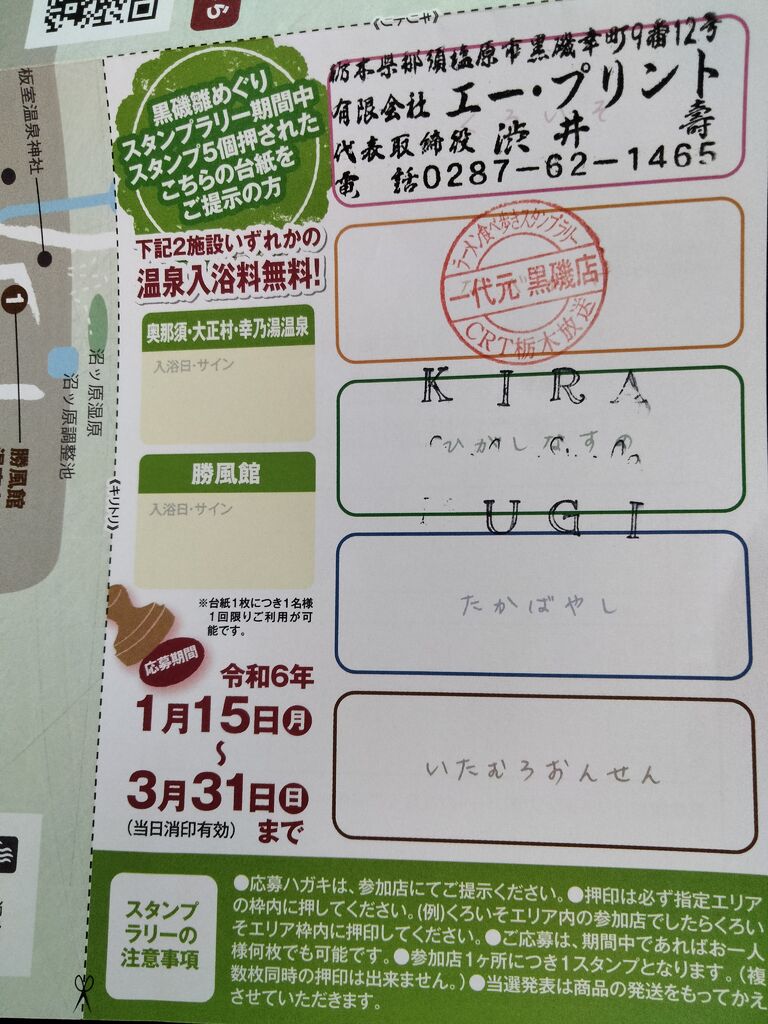 5
《キリトリ》
板室温泉神社
1
沼ッ原湿原
沼ッ原調整池
勝風館
《キリトリ》
黒磯雛めぐり
スタンプラリー期間中
スタンプ5個押された
こちらの台紙を
ご提示の方
下記2施設いずれかの
温泉入浴料無料!
奥那須・大正村・幸乃湯温泉
入浴日・サイン
勝風館
入浴日・サイン
※台紙1枚につき1名様
1回限りご利用が可
能です。
応募期間
令和6年
1月15日月
〜
3月31日日
(当日消印有効) まで
栃木県那須塩原市黒磯幸町9番12号
有限会社 エー・プリント
代表取締役 渋井 壽
電 話0287-62-1465
ラーメン食べ歩きスタンプラリー
一代元 黒磯店
CRT栃木放送
KIRA
ひがしなすの
UGI
たかばやし
いたむろおんせん
スタンプ
ラリーの
注意事項
●応募ハガキは、参加店にてご提示ください。●押印は必ず指定エリア
の枠内に押してください。(例)くろいそエリア内の参加店でしたらくろい
そエリア枠内に押印してください。●ご応募は、期間中であればお一人
様何枚でも可能です。●参加店1ヶ所につき1スタンプとなります。(複
数枚同時の押印は出来ません。)●当選発表は商品の発送をもってかえ
させていただきます。